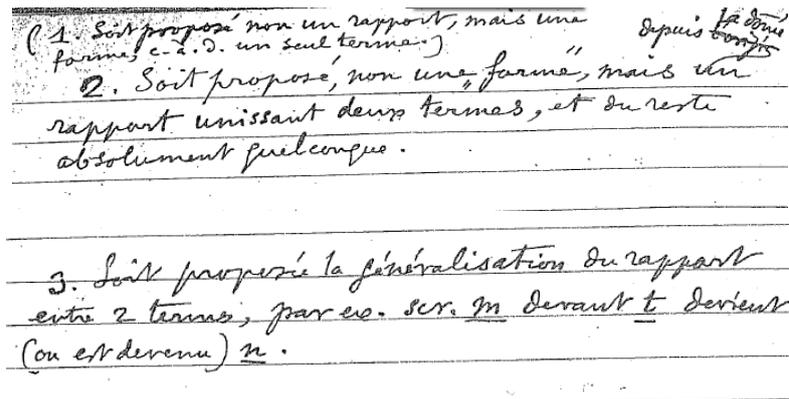 (1. Soit proposé non un rapport, mais une
forme, c.-à.d. un seul terme.)
depuis
2. Soit proposé, non une „forme”, mais un
rapport unissant deux termes, et du reste
absolument quelconque.
3. Soit proposée la généralisation du rapport
entre 2 termes, par ex. scr. m devant t devient
(ou est devenu) n.